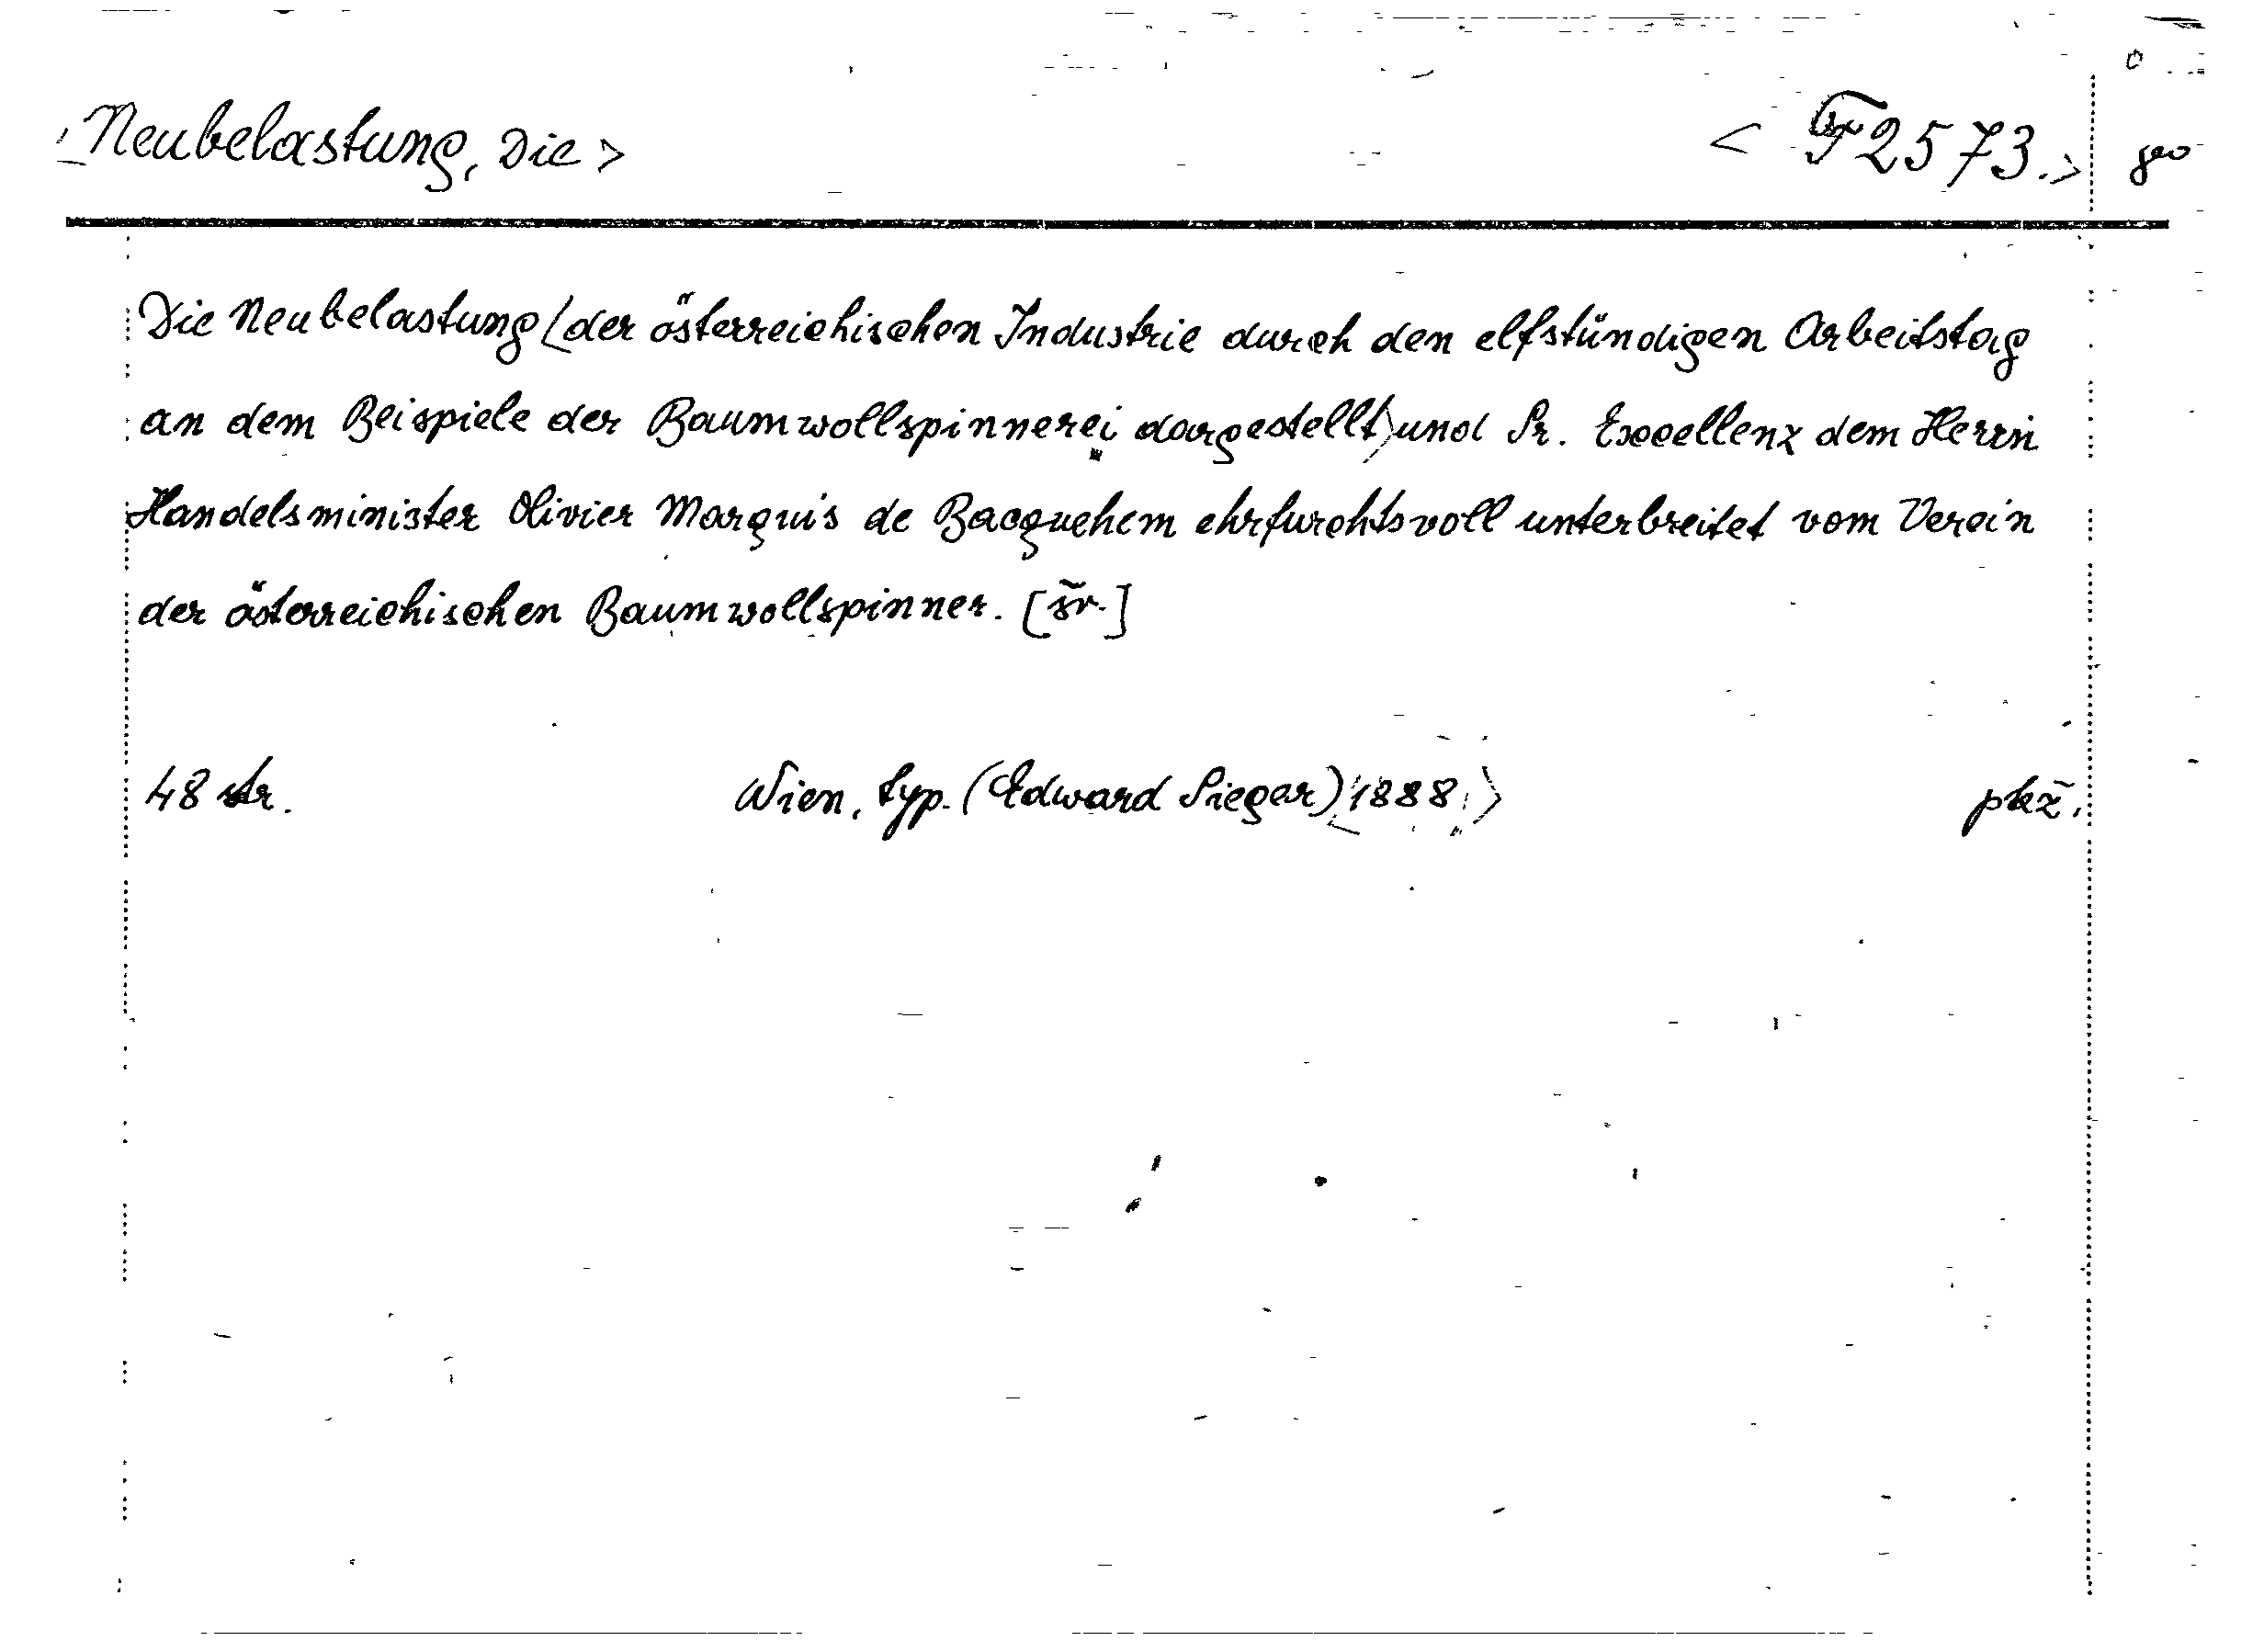 Neubelastung, Die > < F 2573. > 8°
Die Neubelastung < der österreichischen Industrie durch den elfstündigen Arbeitstag
an dem Beispiele der Baumwollspinnerei dargestellt > und Sr. Excellenz dem Herrn
Handelsminister Olivier Marquis de Bacquehem ehrfurchtsvoll unterbreitet vom Verein
der österreichischen Baumwollspinner. [šr.]
48 str. Wien, typ. (Edward Sieger) < 1888. > ptž.